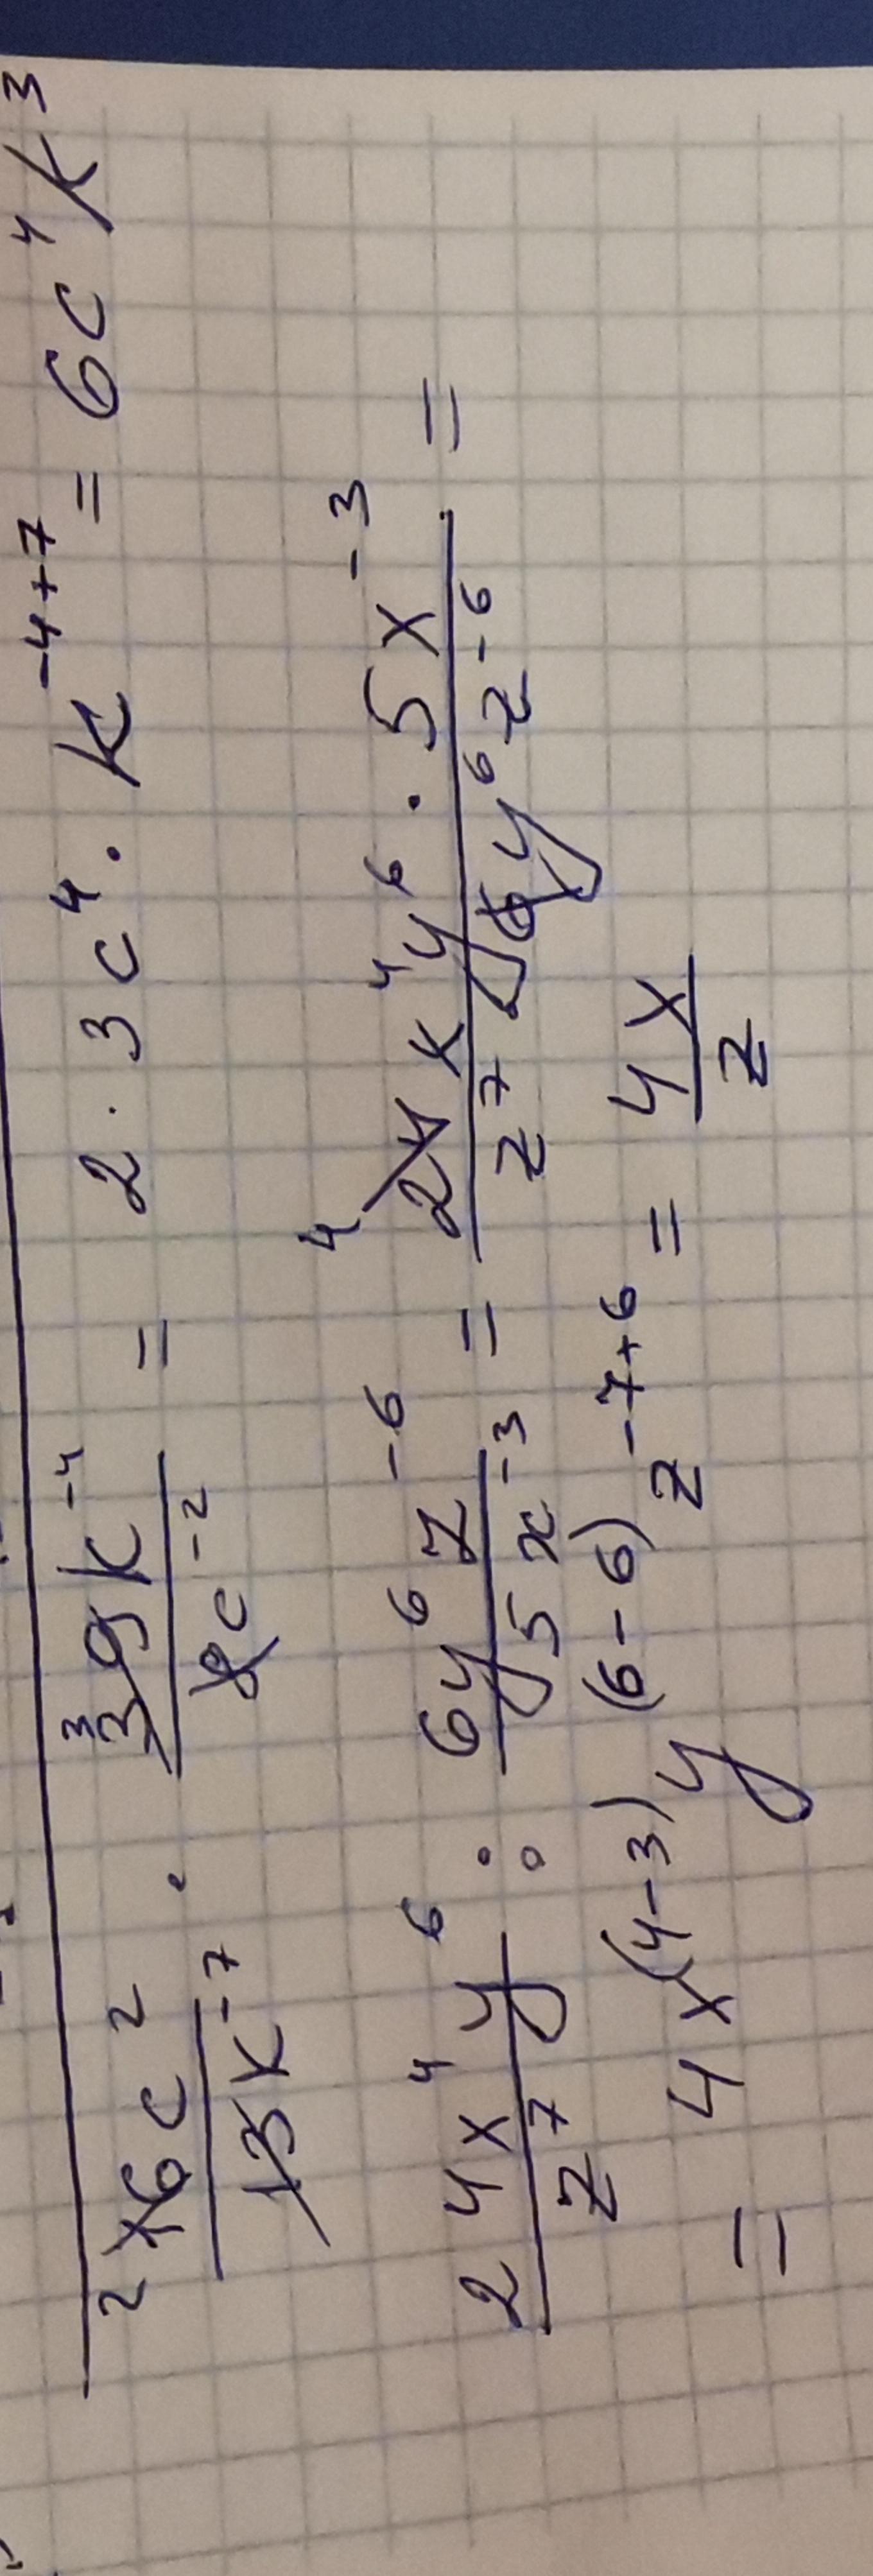 \frac{^2 16c^2}{13k^{-7}} \cdot \frac{^3 39k^{-4}}{8c^{-2}} = 2 \cdot 3c^4 \cdot k^{-4+7} = 6c^4k^3
\frac{24x^4y^6}{z^7} : \frac{6y^6z^{-6}}{5x^{-3}} = \frac{^4 24x^4y^6 \cdot 5x^{-3}}{z^7 6y^6z^{-6}} =
= 4x^{(4-3)}y^{(6-6)}z^{-7+6} = \frac{4x}{z}